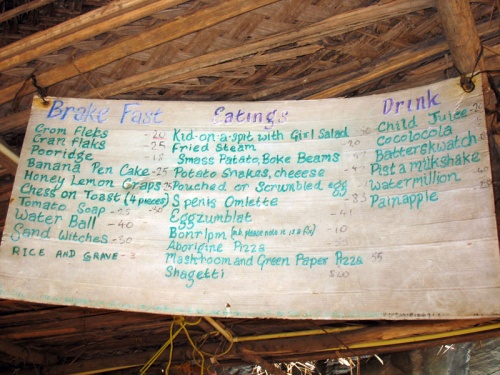 Brake Fast
Crom flets -20
Cran flaks -25
Pooridge -15
Banana Pen Cake -25
Honey Lemon Graps 25
Chess on Toast (4 pieces) -30
Tomato Soap -25
Water Ball -40
Sand Witches -30
RICE AND GRAVE -3
Eatings
Kid-on-a-spit with Girl Salad
Fried Steam
Smass Patato, Boke Beams
Potato Snakas, cheeese
Pouched or Scrumbled egg
Spenis Omlette
Eggzumblat -41
Bonripm -10
Aborigine Pizza
Mashroom and Green Paper Pizza 55
Shagetti
Drink
Child Juice
Cocolocola
Batterskwatch
Pista milkshake
Watermillion
Painapple